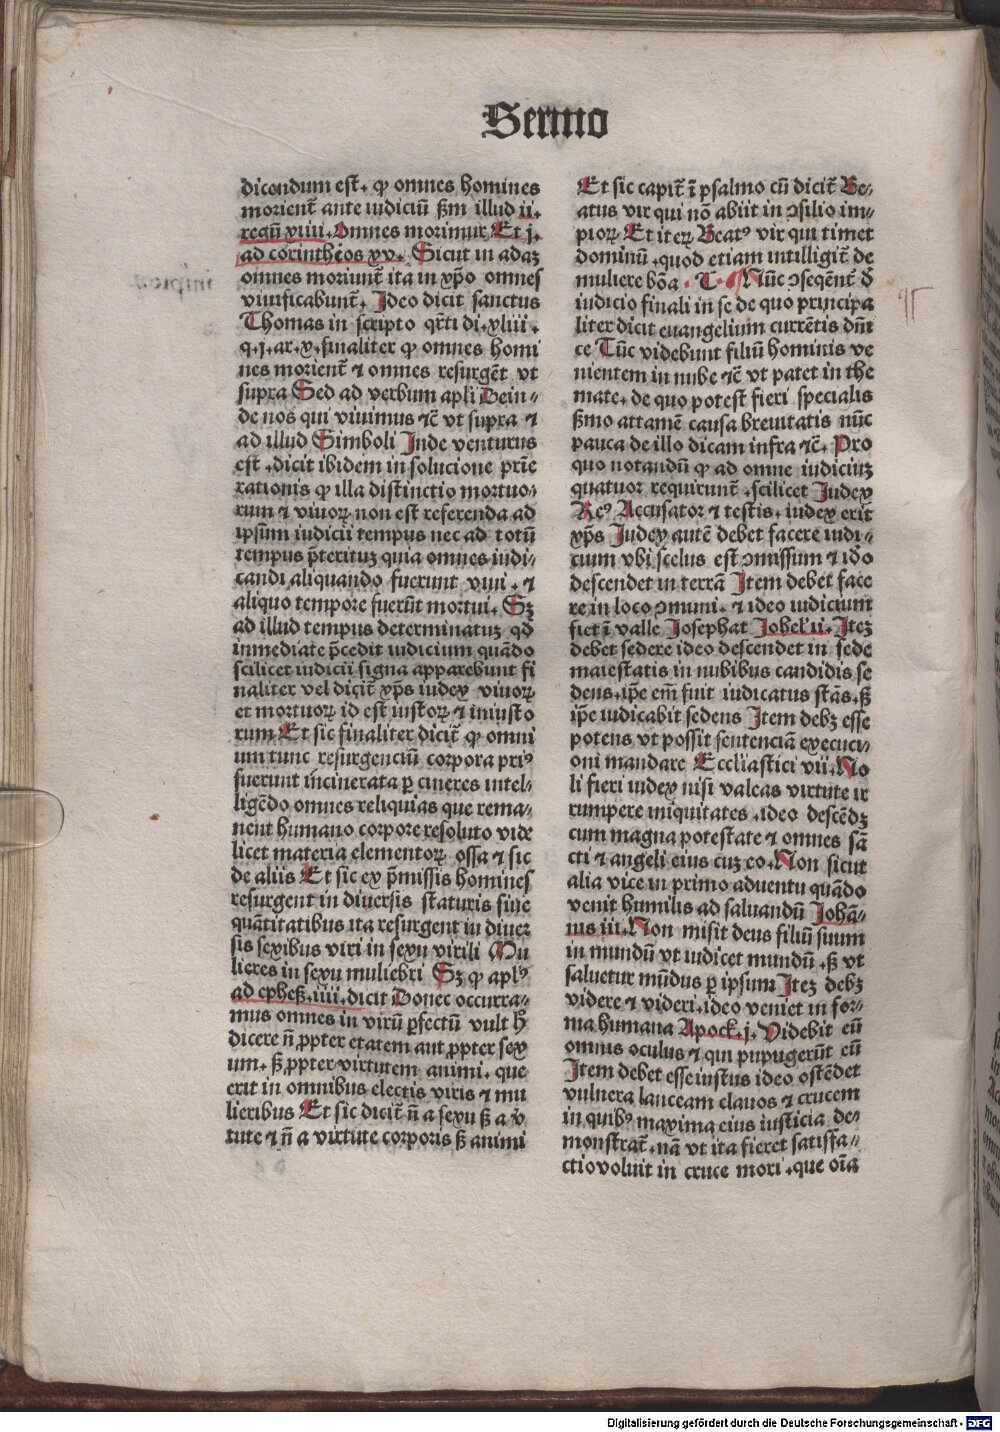 Sermo
dicendum est. ꝙ omnes homines
morient̄ ante iudiciū ẞm illud ii.
regū xiiii. Omnes morimur Et j.
ad corintheos xv. Sicut in adaꝫ
omnes moriunt̄ ita in xp̄o omnes
viuificabunt̄. Ideo dicit sanctus
Thomas in scripto qr̄ti di. xliii.
q. j. ar. x. finaliter ꝙ omnes homi
nes morient̄ ⁊ omnes resurgēt vt
supra Sed ad verbum apli Dein⸗
de nos qui viuimus ⁊c̄ vt supra ⁊
ad illud Simboli Inde venturus
est. dicit ibidem in solucione prīe
rationis ꝙ illa distinctio mortuo⸗
rum ⁊ viuoꝝ non est referenda ad
ipsūm iudicii tempus nec ad totū
tempus p̄terituꝫ quia omnes iudi⸗
candi aliquando fuerunt viui. ⁊
aliquo tempore fuerūt mortui. Sꝫ
ad illud tempus determinatuꝫ qd
inmediate p̄cedit iudicium quādo
scilicet iudicii signa apparebunt fi
naliter vel dicit̄ xp̄s iudex viuoꝝ
et mortuoꝝ id est iustoꝝ ⁊ iniusto
rum Et sic finaliter dicit̄ ꝙ omni
um tunc resurgenciū corpora priꝰ
fuerunt incinerata ꝑ cineres intel⸗
ligēdo omnes reliquias que rema⸗
nent humano corpore resoluto vide
licet materia elementoꝝ ossa ⁊ sic
de aliis Et sic ex p̄missis homines
resurgent in diuersis staturis siue
quātitatibus ita resurgent in diuer
sis sexibus viri in sexu virili Mu
lieres in sexu muliebri Sꝫ ꝙ aplꝰ
ad epheẞ. iiii. dicit Donec occurra⸗
mus omnes in virū ꝑfectū vult ħ
dicere n̄ ꝓpter etatem aut ꝓpter sex
um. ẞ ꝓpter virtutem animi. que
erit in omnibus electis viris ⁊ mu
lieribus Et sic dicit̄ n̄ a sexu ẞ a v̄
tute ⁊ n̄ a virtute corporis ẞ animi
Et sic capit̄ ī psalmo cū dicit̄ Be⸗
atus vir qui nō abiit in ↄsilio im⸗
pioꝝ Et iteꝝ Beatꝰ vir qui timet
dominū. quod etiam intilligit̄ de
muliere bōa. T. Nūc ↄseqēnt̄ đ
iudicio finali in se de quo principa
liter dicit euangelium currētis dn̄i
ce Tūc videbunt filiū hominis ve
nientem in nube ⁊c̄ vt patet in the
mate. de quo potest fieri specialis
ẞmo attamē causa breuitatis nūc
pauca de illo dicam infra ⁊c̄. Pro
quo notandū ꝙ ad omne iudiciuꝫ
quatuor requirunt̄. scilicet Iudex
Reꝰ Accusator ⁊ testis. iudex erit
xp̄s Iudex autē debet facere iudi⸗
cium vbi scelus est ↄmissum ⁊ iđo
descendet in terrā Item debet face
re in loco ↄmuni. ⁊ ideo iudicium
fiet ī valle Josephat Johel' ii. Iteꝫ
debet sedere ideo descendet in sede
maiestatis in nubibus candidis se
dens. ip̄e em̄ fuit iudicatus stās. ẞ
ip̄e iudicabit sedens Item debꝫ esse
potens vt possit sentenciā execuci⸗
oni mandare Eccl̄iastici vii. No
li fieri iudex nisi valeas virtute ir
rumpere iniquitates. ideo descēdꝫ
cum magna potestate ⁊ omnes sā
cti ⁊ angeli eius cuꝫ eo. Non sicut
alia vice in primo aduentu quādo
venit humilis ad saluandū Johā⸗
nis iii. Non misit deus filiū suum
in mundū vt iudicet mundū. ẞ vt
saluetur mūdus ꝑ ipsum Iteꝫ debꝫ
videre ⁊ videri. ideo veniet in for⸗
ma humana Apock. j. Videbit eū
omnis oculus ⁊ qui pupugerūt eū
Item debet esse iustus ideo ostēdet
vulnera lanceam clauos ⁊ crucem
in quibꝰ maxima eius iusticia de⸗
monstrat̄. nā vt ita fieret satisfa⸗
ctio voluit in cruce mori. que oīa
Digitalisierung gefördert durch die Deutsche Forschungsgemeinschaft - DFG